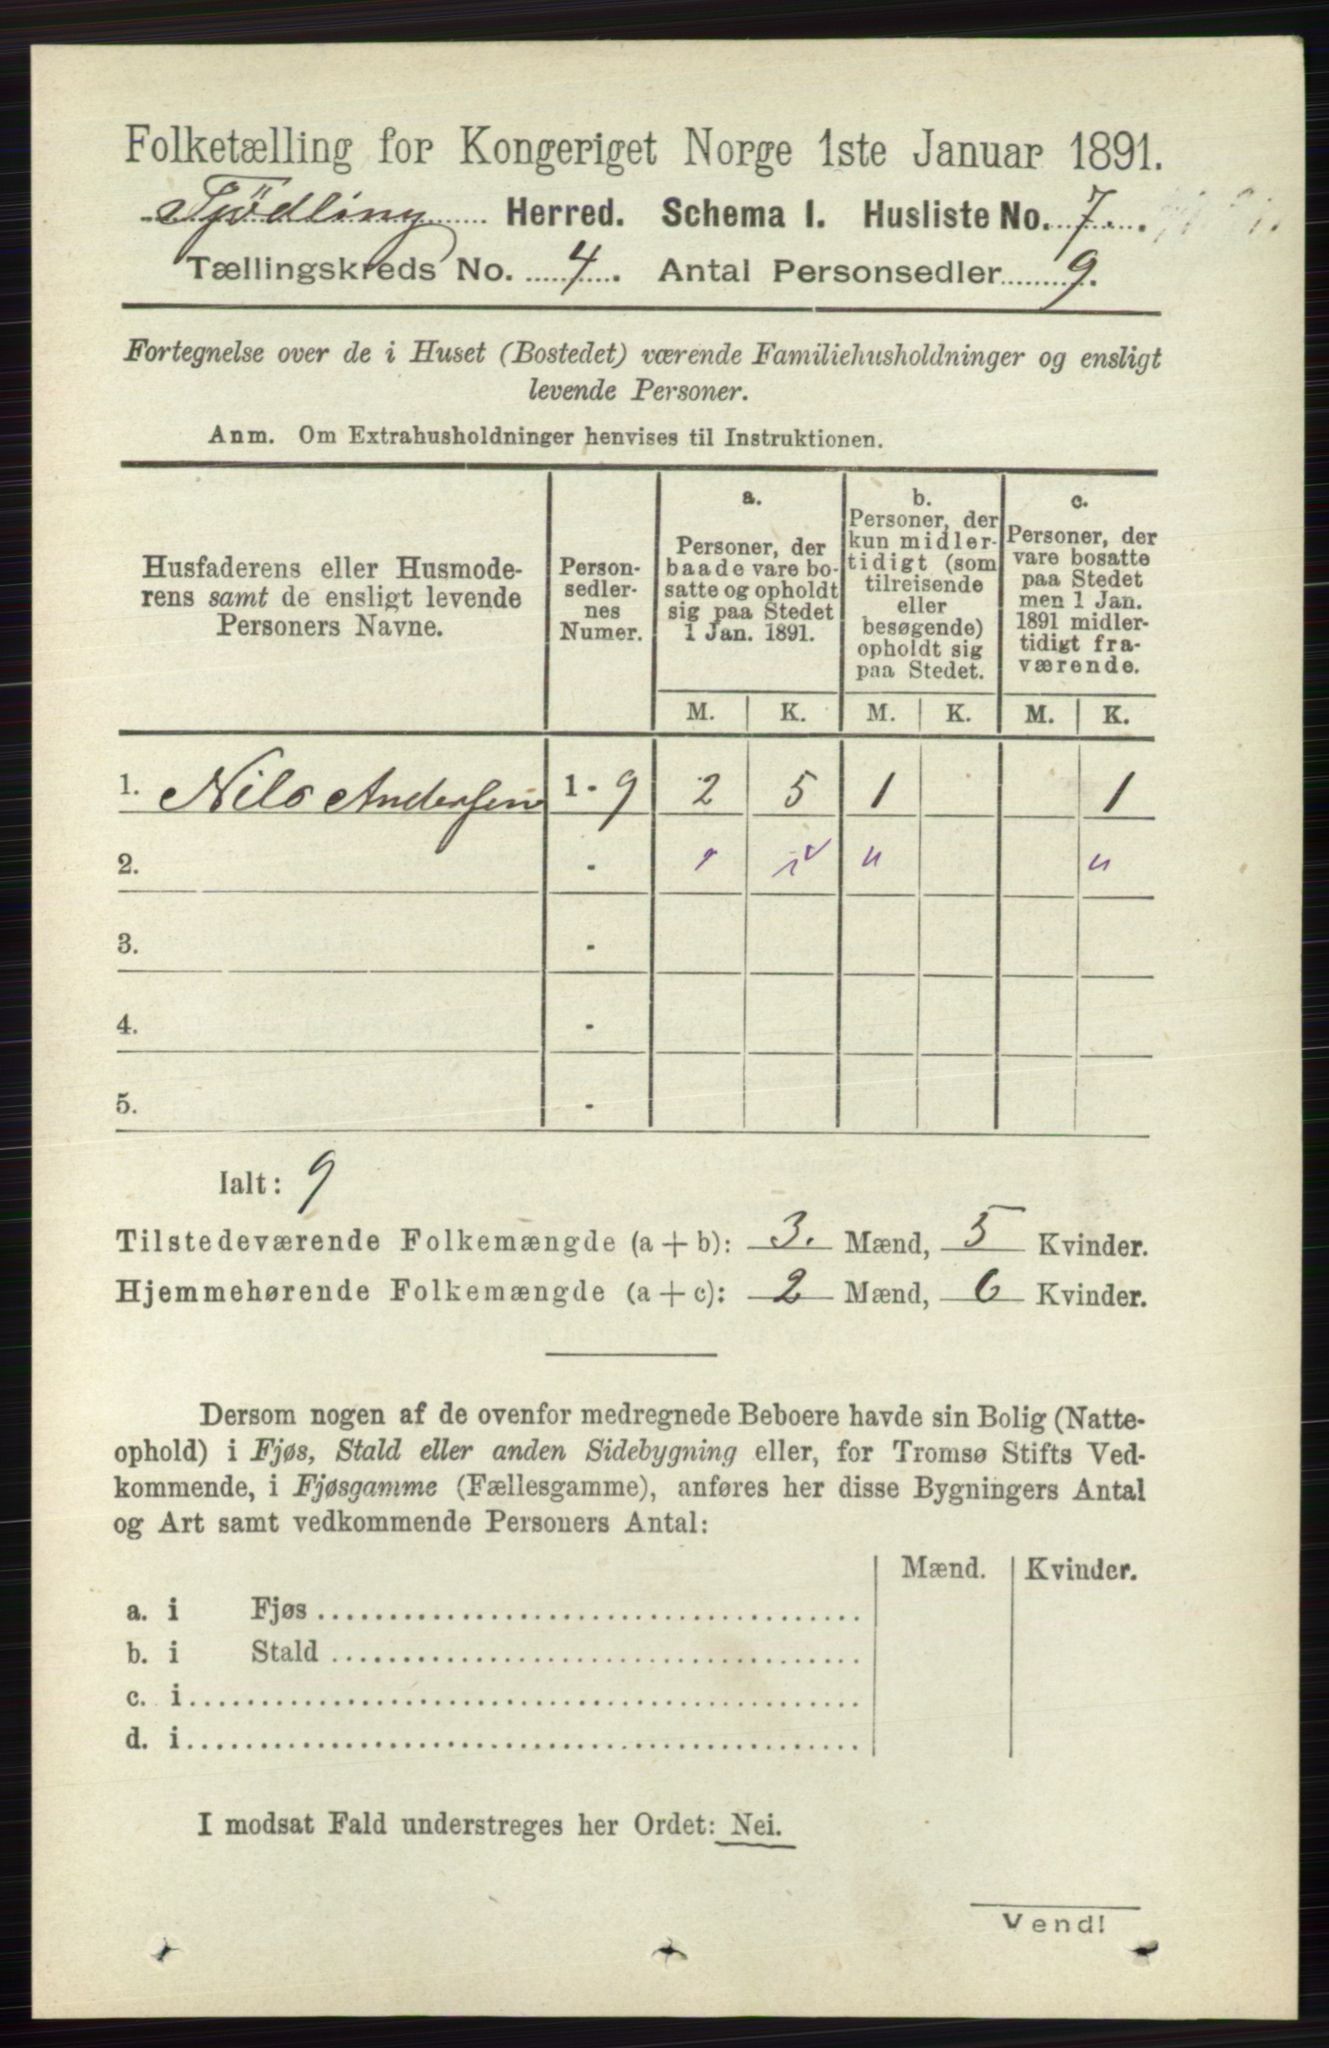 Folketælling for Kongeriget Norge 1ste Januar 1891.
Tjödling Herred. Schema I. Husliste No. 7.
Tællingskreds No. 4. Antal Personsedler 9.
Fortegnelse over de i Huset (Bostedet) værende Familiehusholdninger og ensligt
levende Personer.
Anm. Om Extrahusholdninger henvises til Instruktionen.
Husfaderens eller Husmode-
rens samt de ensligt levende
Personers Navne.
Person-
sedler-
nes
Numer.
a.
Personer, der
baade vare bo-
satte og opholdt
sig paa Stedet
1 Jan. 1891.
b.
Personer, der
kun midler-
tidigt (som
tilreisende
eller
besøgende)
opholdt sig
paa Stedet.
c.
Personer, der
vare bosatte
paa Stedet
men 1 Jan.
1891 midler-
tidigt fra-
værende.
M. K. M. K. M. K.
1. Nils Andersen 1 - 9 2 5 1 1
2. -
3. -
4. -
5. -
Ialt: 9
Tilstedeværende Folkemængde (a + b): 3. Mænd, 5 Kvinder.
Hjemmehørende Folkemængde (a + c): 2 Mænd, 6 Kvinder.
Dersom nogen af de ovenfor medregnede Beboere havde sin Bolig (Natte-
ophold) i Fjøs, Stald eller anden Sidebygning eller, for Tromsø Stifts Ved-
kommende, i Fjøsgamme (Fællesgamme), anføres her disse Bygningers Antal
og Art samt vedkommende Personers Antal:
Mænd. Kvinder.
a. i Fjøs
b. i Stald
c. i
d. i
I modsat Fald understreges her Ordet: Nei.
Vend!